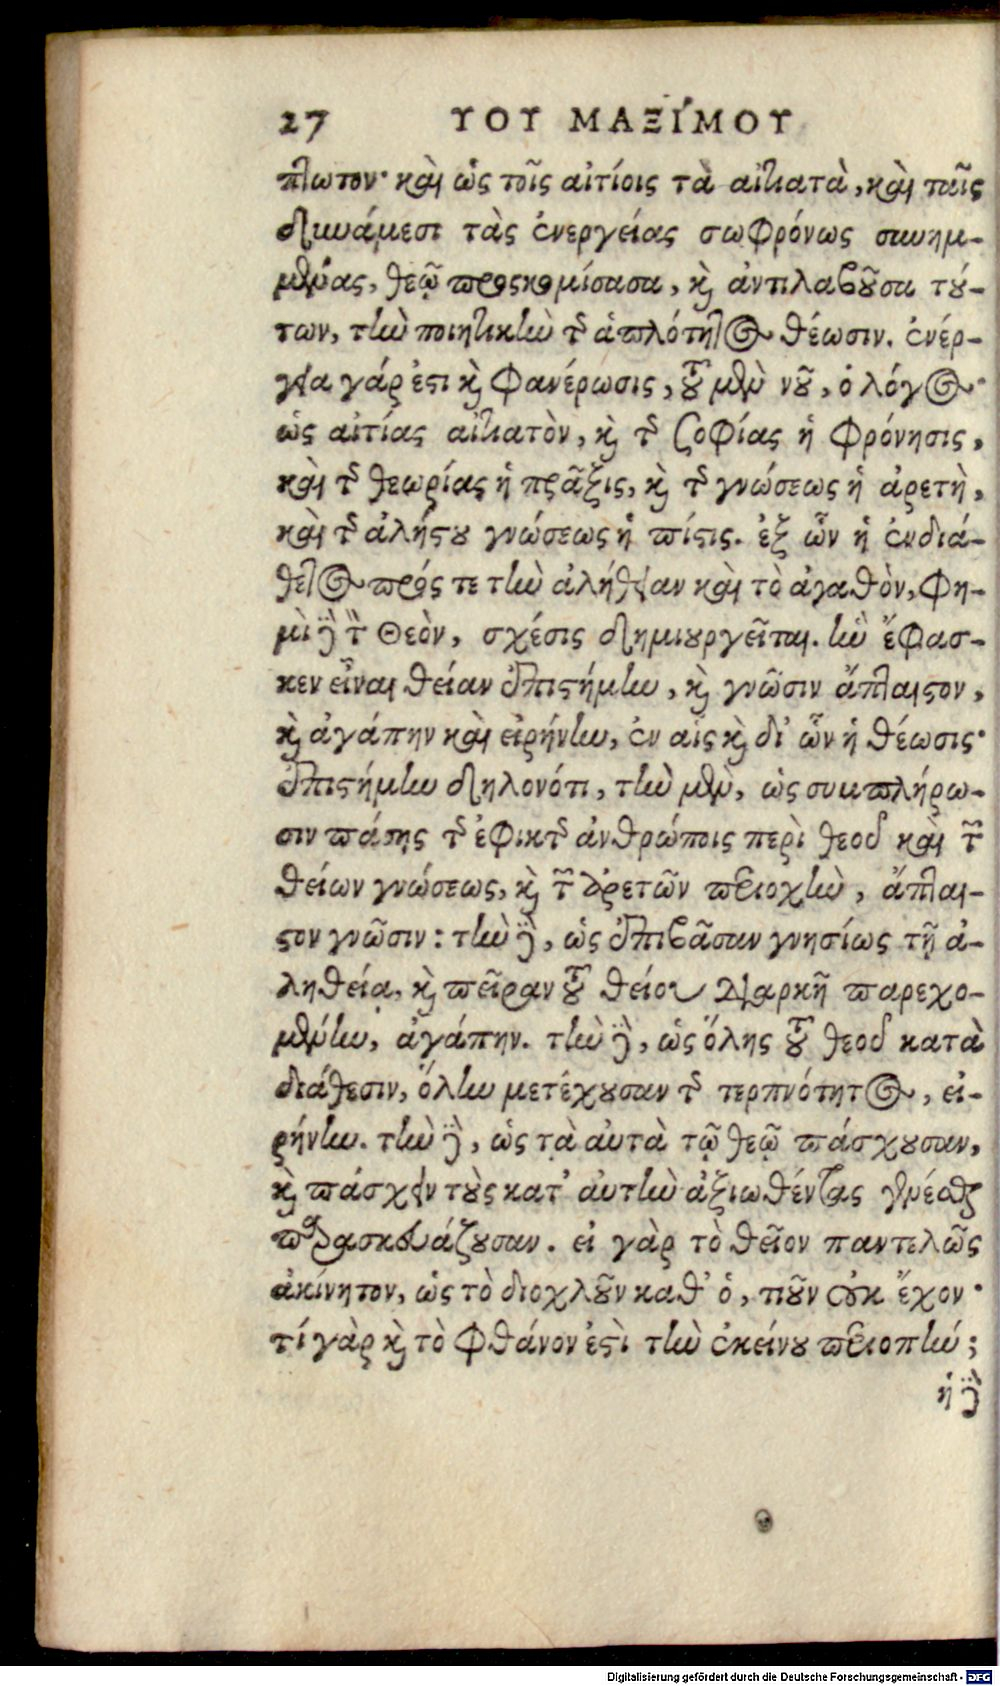 27 ΥΟΥ ΜΑΞΙ´ΜΟΥ
πλωτον· καὶ ὡς τοῖς αἰτίοις τὰ αἰτιατὰ, καὶ ταῖς
δυνάμεσι τὰς ἐνεργείας σωφρόνως συνημ-
μένας, θεῷ προσκομίσασα, καὶ ἀντιλαβοῦσα τού-
των, τὴν ποιητικὴν τῆς ἁπλότητος θέωσιν. ἐνέρ-
γεια γάρ ἐστι καὶ φανέρωσις, τοῦ μὲν νοῦ, ὁ λόγος·
ὡς αἰτίας αἰτιατὸν, καὶ τῆς σοφίας ἡ φρόνησις,
καὶ τῆς θεωρίας ἡ πρᾶξις, καὶ τῆς γνώσεως ἡ ἀρετὴ,
καὶ τῆς ἀλήστου γνώσεως ἡ πίστις. ἐξ ὧν ἡ ἐνδιά-
θετος πρός τε τὴν ἀλήθειαν καὶ τὸ ἀγαθὸν, φη-
μὶ δὲ τὸν Θεὸν, σχέσις δημιουργεῖται. ἣν ἔφασ-
κεν εἶναι θείαν ἐπιστήμην, καὶ γνῶσιν ἄπταιστον,
καὶ ἀγάπην καὶ εἰρήνην, ἐν αἷς καὶ δι' ὧν ἡ θέωσις·
ἐπιστήμην δηλονότι, τὴν μὲν, ὡς συμπλήρω-
σιν πάσης τῆς ἐφικτῆς ἀνθρώποις περὶ θεοῦ καὶ τῶν
θείων γνώσεως, καὶ τῶν ἀρετῶν περιοχὴν, ἄπται-
στον γνῶσιν: τὴν δὲ, ὡς ἐπιβᾶσαν γνησίως τῇ ἀ-
ληθείᾳ, καὶ πεῖραν τοῦ θείου διαρκῆ παρεχο-
μένην, ἀγάπην. τὴν δὲ, ὡς ὅλης τοῦ θεοῦ κατὰ
διάθεσιν, ὅλην μετέχουσαν τῆς τερπνότητος, εἰ-
ρήνην. τὴν δὲ, ὡς τὰ αὐτὰ τῷ θεῷ πάσχουσαν,
καὶ πάσχειν τοὺς κατ' αὐτὴν ἀξιωθέντας γενέσθαι
παρασκευάζουσαν. εἰ γὰρ τὸ θεῖον παντελῶς
ἀκίνητον, ὡς τὸ διοχλοῦν καθ' ὁ, τιοῦν οὐκ ἔχον·
τί γὰρ καὶ τὸ φθάνον ἐστὶ τὴν ἐκείνου περιοπτήν;
ἡ δὲ
Digitalisierung gefördert durch die Deutsche Forschungsgemeinschaft - DFG